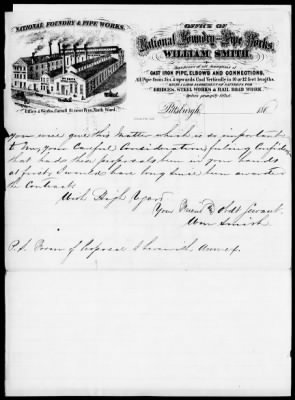 NATIONAL FOUNDRY & PIPE WORKS.
Office & Works, Carroll & Smallman Sts. Ninth Ward.
OFFICE OF
National Foundry and Pipe Works,
WILLIAM SMITH,
Manufacturer of all descriptions of
CAST IRON PIPE, ELBOWS AND CONNECTIONS,
All Pipe from Six & upwards Cast Vertically in 10 or 12 feet lengths.
BRIDGES, STEEL WORKS & RAIL ROAD WORK.
Orders promptly filled.
Pittsburgh, 186
you will give this matter which is so important
to me, your careful consideration, feeling confident
that had the proposals been in your hands
at first, I would have long since been awarded
the Contract
With High Regard
Your Friend & Obdt Servant
Wm Smith
P.S. Form of Proposal I herewith Annex